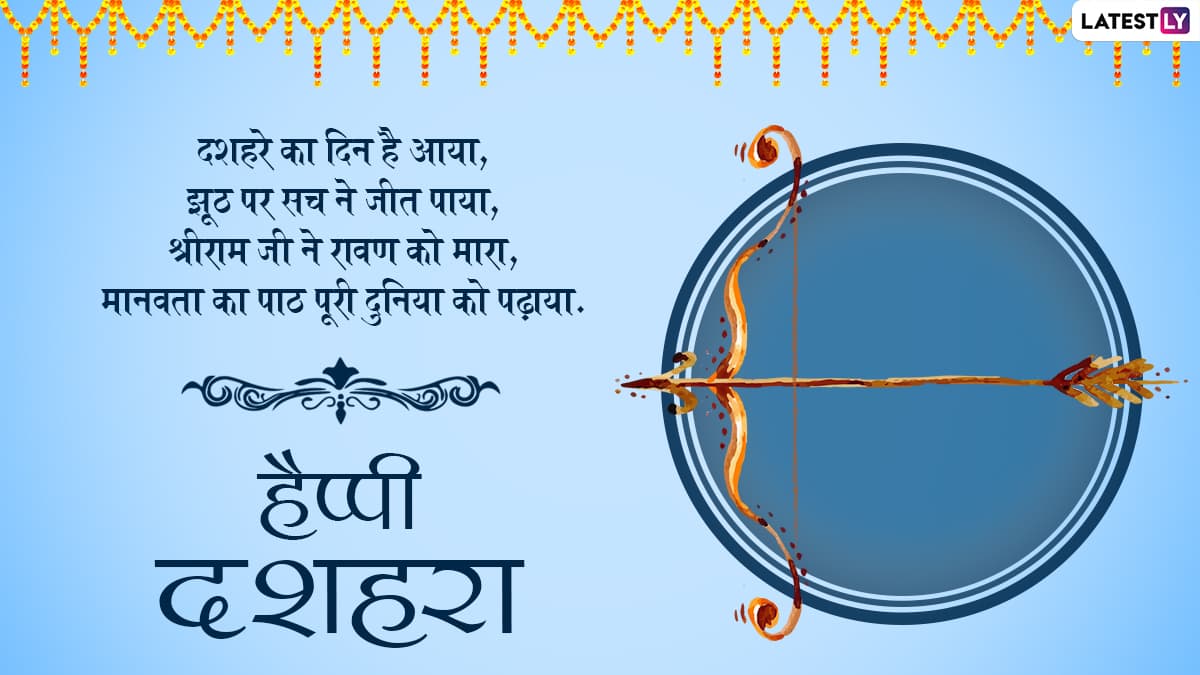 LATESTLY
दशहरे का दिन है आया,
झूठ पर सच ने जीत पाया,
श्रीराम जी ने रावण को मारा,
मानवता का पाठ पूरी दुनिया को पढ़ाया.
हैप्पी
दशहरा